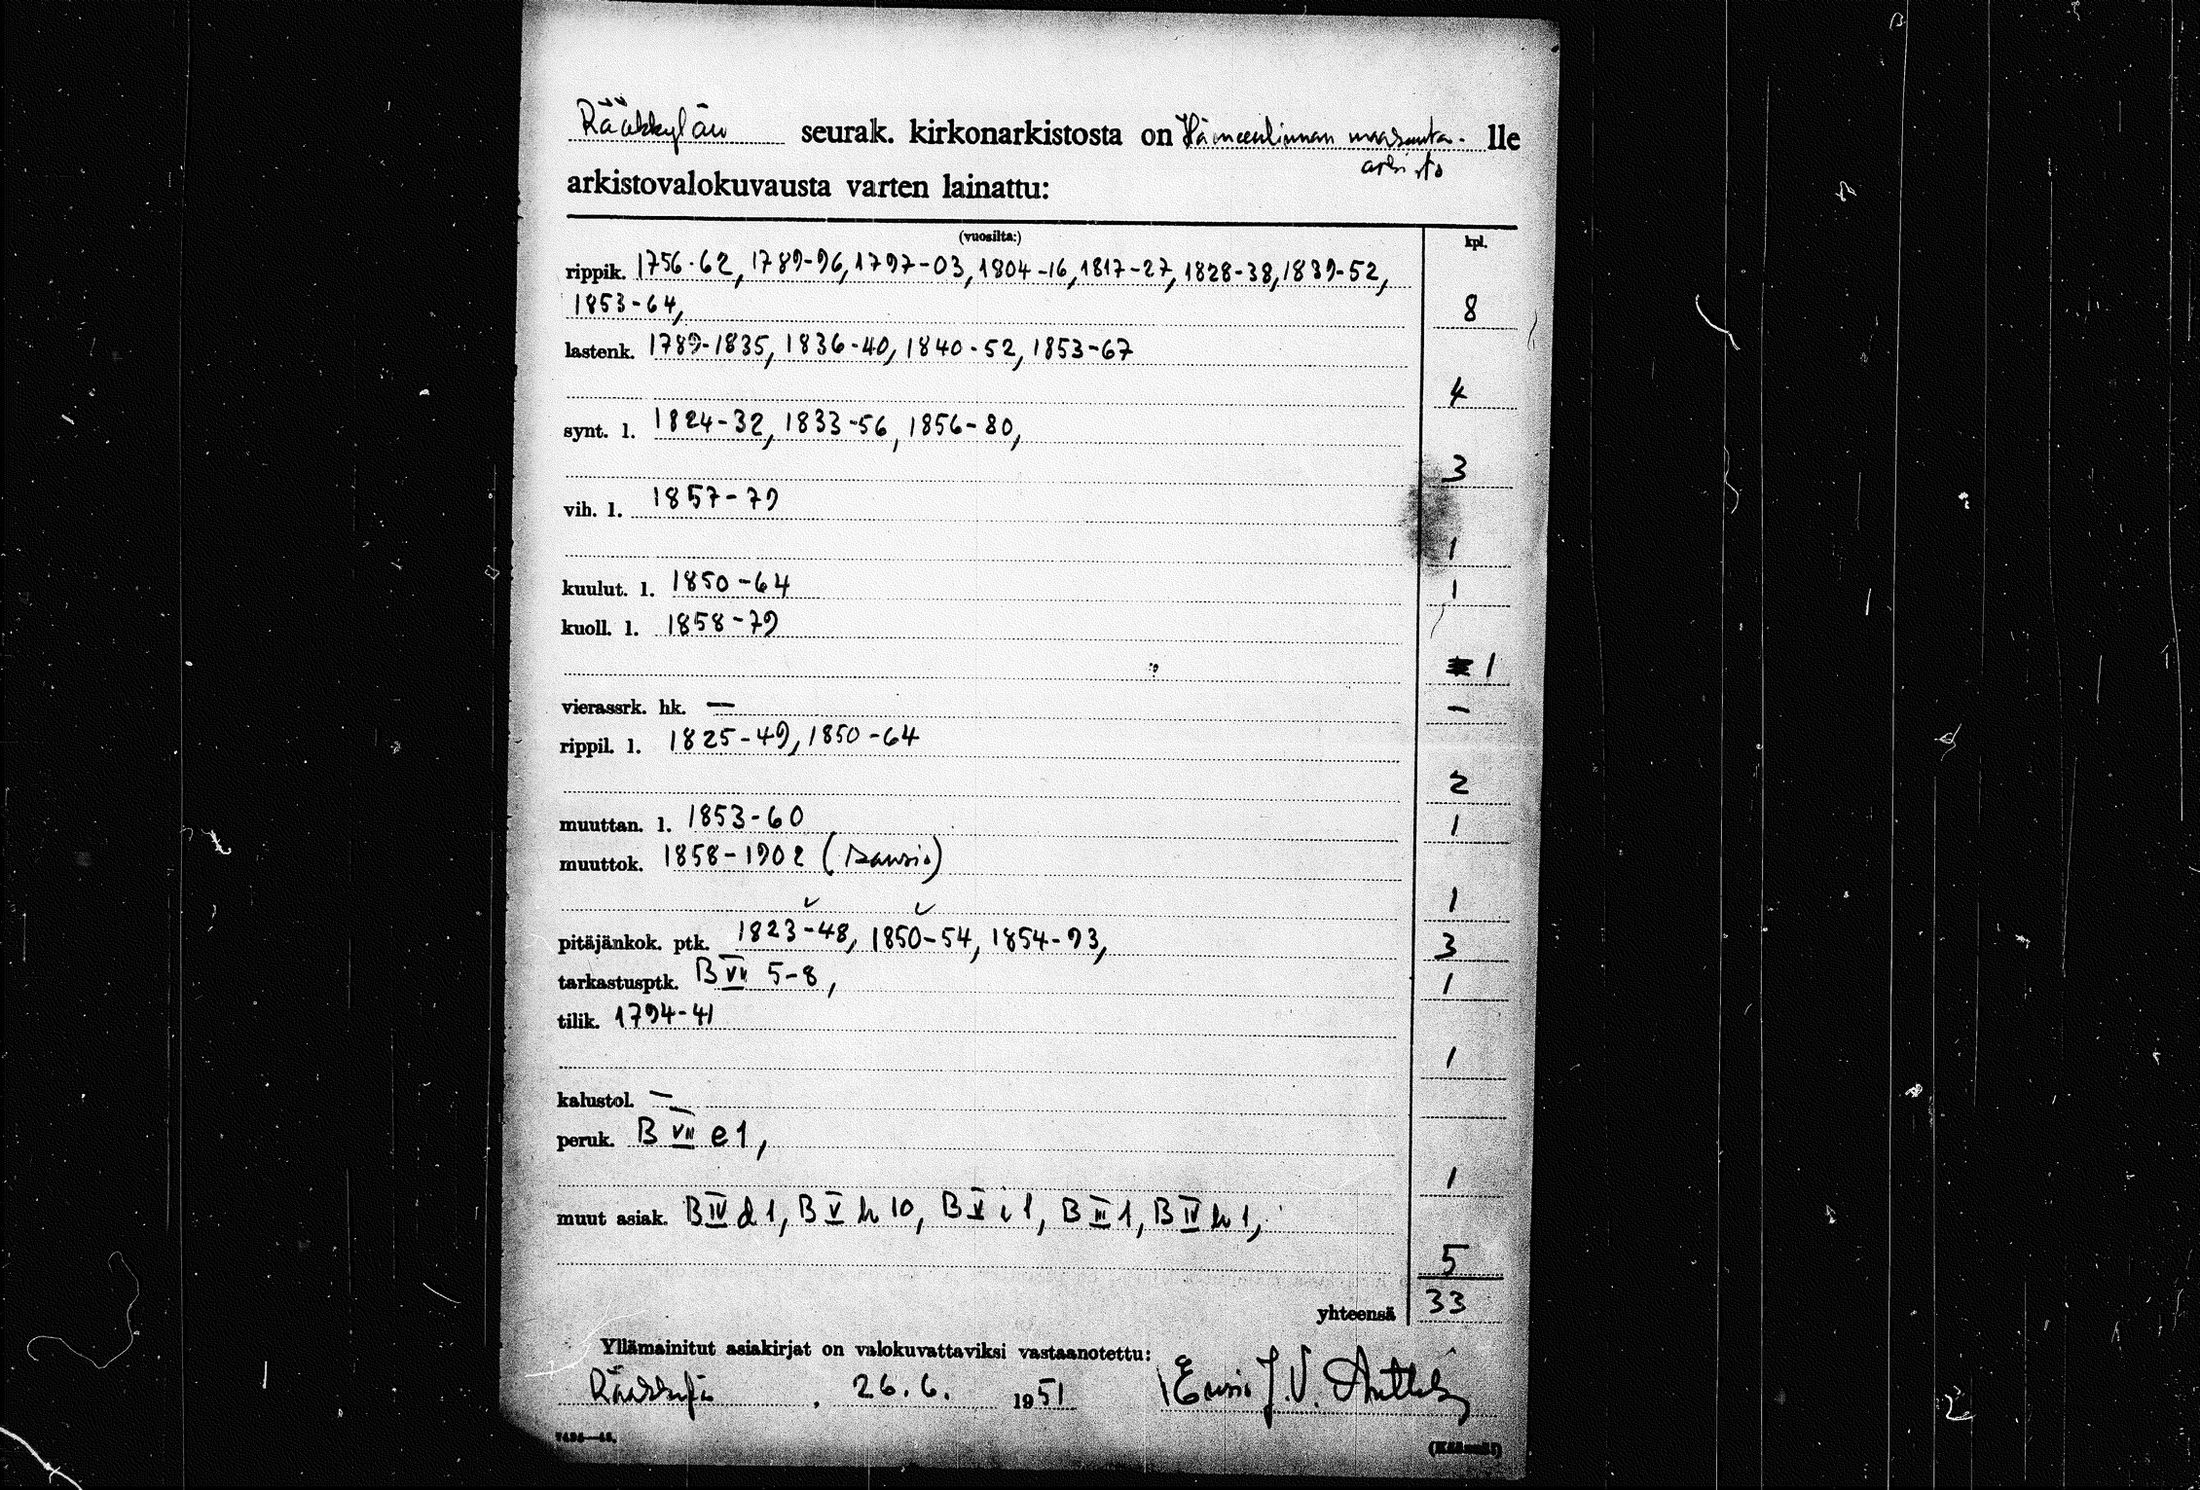 Rääkkylän seurak. kirkonarkistosta on Hämeenlinnan maakunta- lle
arkisto
arkistovalokuvausta varten lainattu:
(vuosilta:) kpl.
rippik. 1756-62, 1789-96, 1797-03, 1804-16, 1817-27, 1828-38, 1839-52,
1853-64, 8
lastenk. 1789-1835, 1836-40, 1840-52, 1853-67
4
synt. l. 1824-32, 1833-56, 1856-80,
3
vih. l. 1857-79
1
kuulut. l. 1850-64 1
kuoll. l. 1858-79
1
vierassrk. hk. — —
rippil. l. 1825-49, 1850-64
2
muuttan. l. 1853-60 1
muuttok. 1858-1902 (kansio)
1
pitäjänkok. ptk. 1823-48, 1850-54, 1854-93, 3
tarkastusptk. B VII 5-8, 1
tilik. 1794-41
1
kalustol. —
peruk. B VII e 1,
1
muut asiak. B IV d 1, B V h 10, B V i 1, B III 1, B IV h 1,
5
yhteensä 33
Yllämainitut asiakirjat on valokuvattaviksi vastaanotettu:
Rääkkylä . 26.6. 1951 J.V.